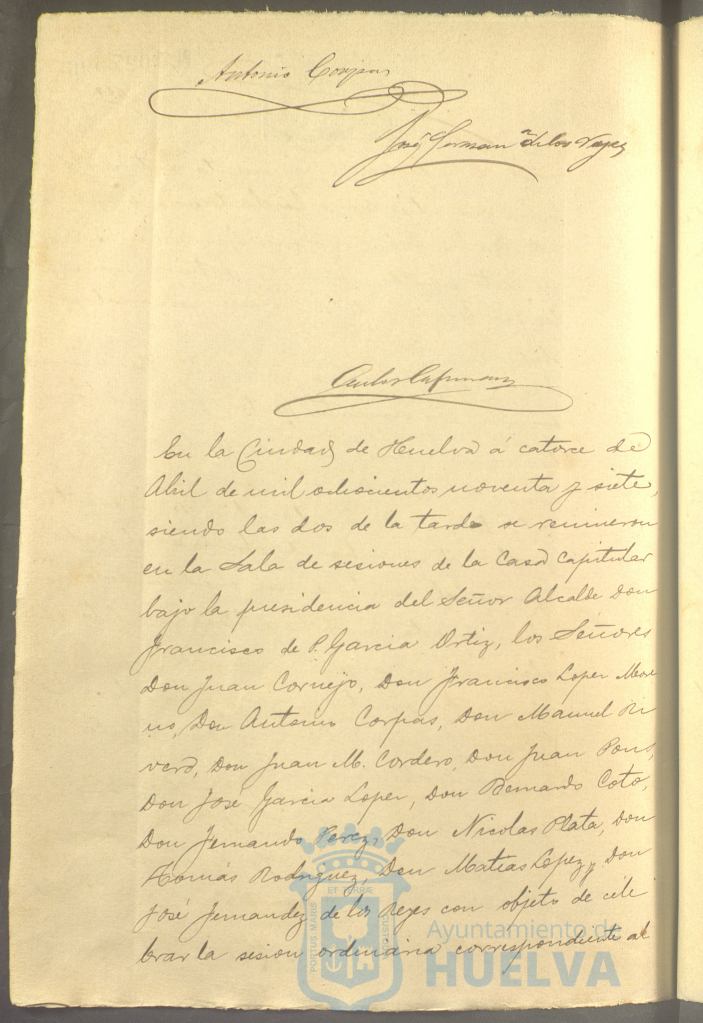 Antonio Corpas
José Fernan^z de los Reyes
En la Ciudad de Huelva á catorce de
Abril de mil ochocientos noventa y siete,
siendo las dos de la tarde se reunieron
en la Sala de sesiones de la Casa Capitular
bajo la presidencia del Señor Alcalde Don
Francisco de P. Garcia Ortiz, los Señores
Don Juan Cornejo, Don Francisco Lopez More
no, Don Antonio Corpas, Don Manuel Ri
vero, Don Juan M. Cordero, Don Juan Pons,
Don José Garcia Lopez, Don Bernardo Coto,
Don Fernando Perez, Don Nicolas Plata, Don
Tomás Rodriguez, Don Matias Lopez y Don
José Fernandez de los Reyes con objeto de cele
brar la sesion ordinaria correspondiente al
PORTUS MARIS ET TERRÆ CUSTODIA
Ayuntamiento de
HUELVA